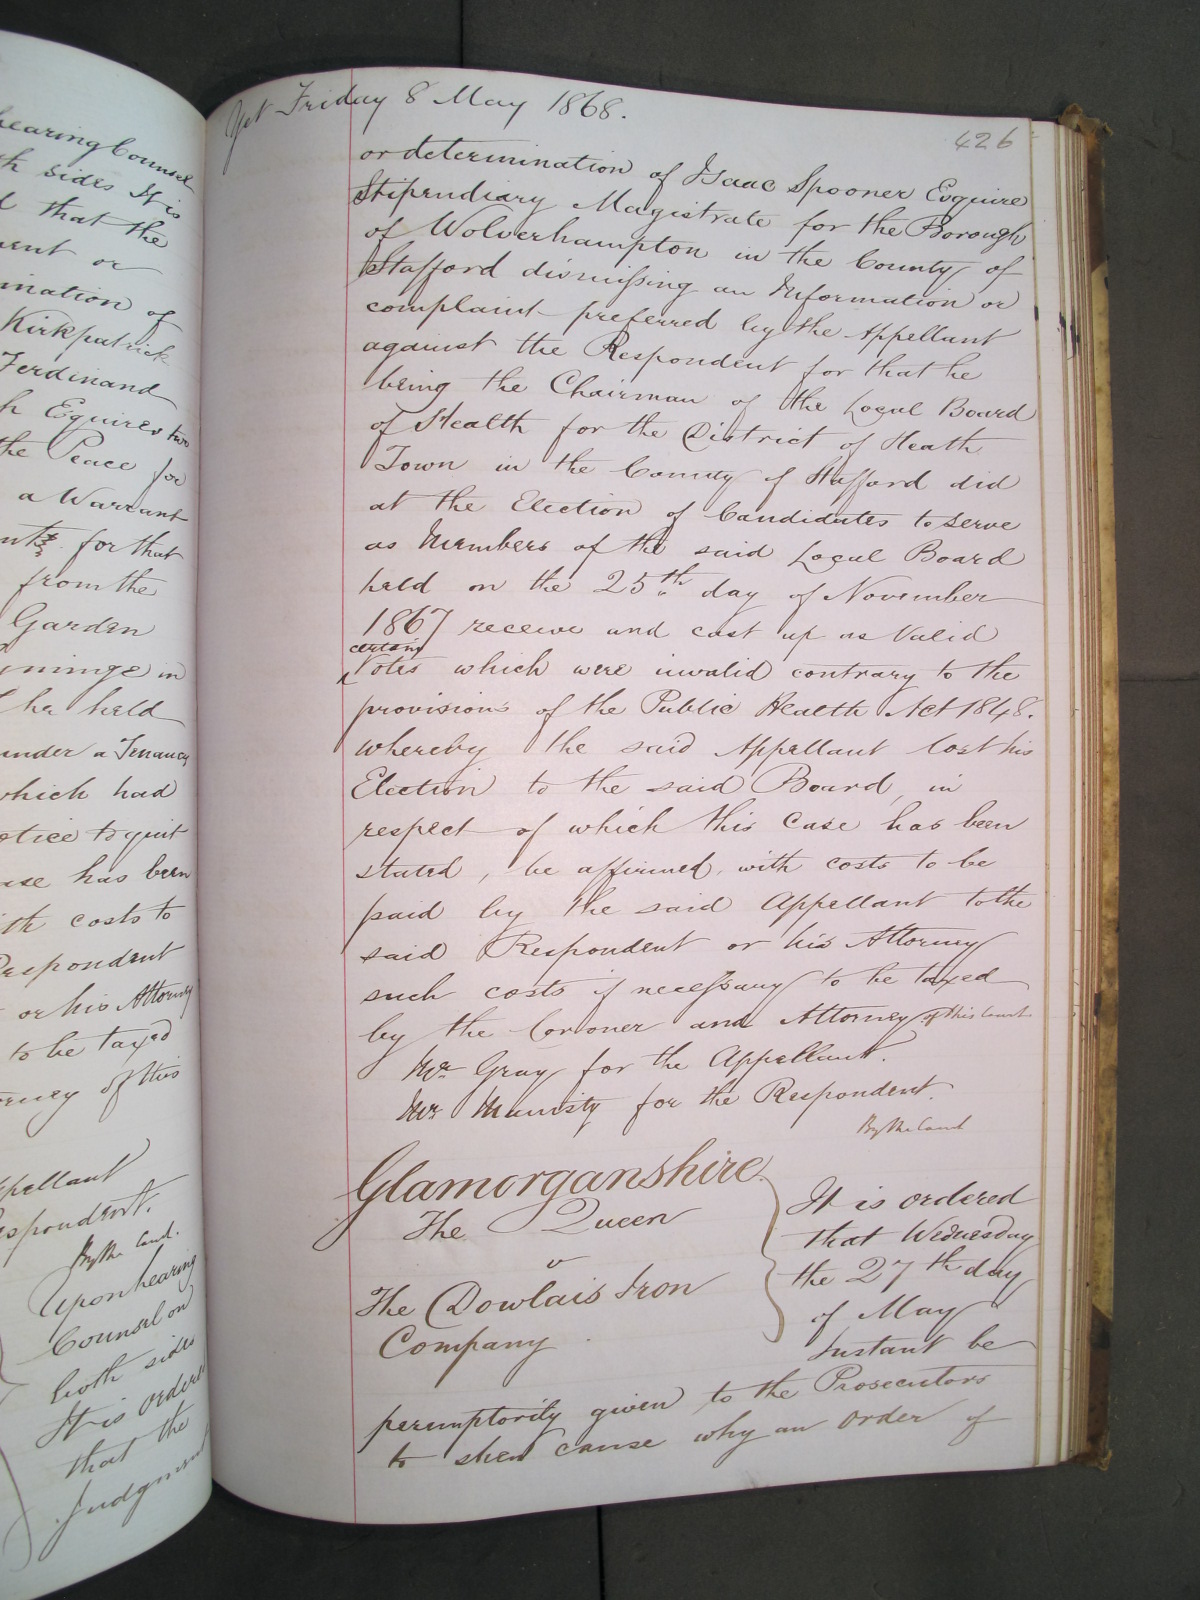 hearing Counsel
sides It is
that the
ment or
mination of
Kirkpatrick
Ferdinand
Esquires two
the Peace for
a Warrant
for that
from the
Garden
in
he held
under a Tenancy
which had
notice to quit
case has been
with costs to
Respondent
or his Attorney
to be taxed
Attorney of this
Appellant
Respondent.
By the Court.
Upon hearing
Counsel on
both sides
It is ordered
that the
Judgment
Yet Friday 8 May 1868.
426
or determination of Isaac Spooner Esquire
Stipendiary Magistrate for the Borough
of Wolverhampton in the County of
Stafford dismissing an Information or
complaint preferred by the Appellant
against the Respondent for that he
being the Chairman of the Local Board
of Health for the District of Heath
Town in the County of Stafford did
at the Election of Candidates to serve
as Members of the said Local Board
held on the 25th day of November
1867 receive and cast up as Valid
certain
Votes which were invalid contrary to the
provisions of the Public Health Act 1848.
whereby the said Appellant lost his
Election to the said Board, in
respect of which this Case has been
stated, be affirmed, with costs to be
paid by the said Appellant to the
said Respondent or his Attorney
such costs if necessary to be taxed
by the Coroner and Attorney of this Court
Mr Gray for the Appellant.
Mr Manisty for the Respondent.
By the Court
Glamorganshire
The Queen
v
The Dowlais Iron
Company
It is ordered
that Wednesday
the 27th day
of May
Instant be
peremptorily given to the Prosecutors
to shew cause why an Order of